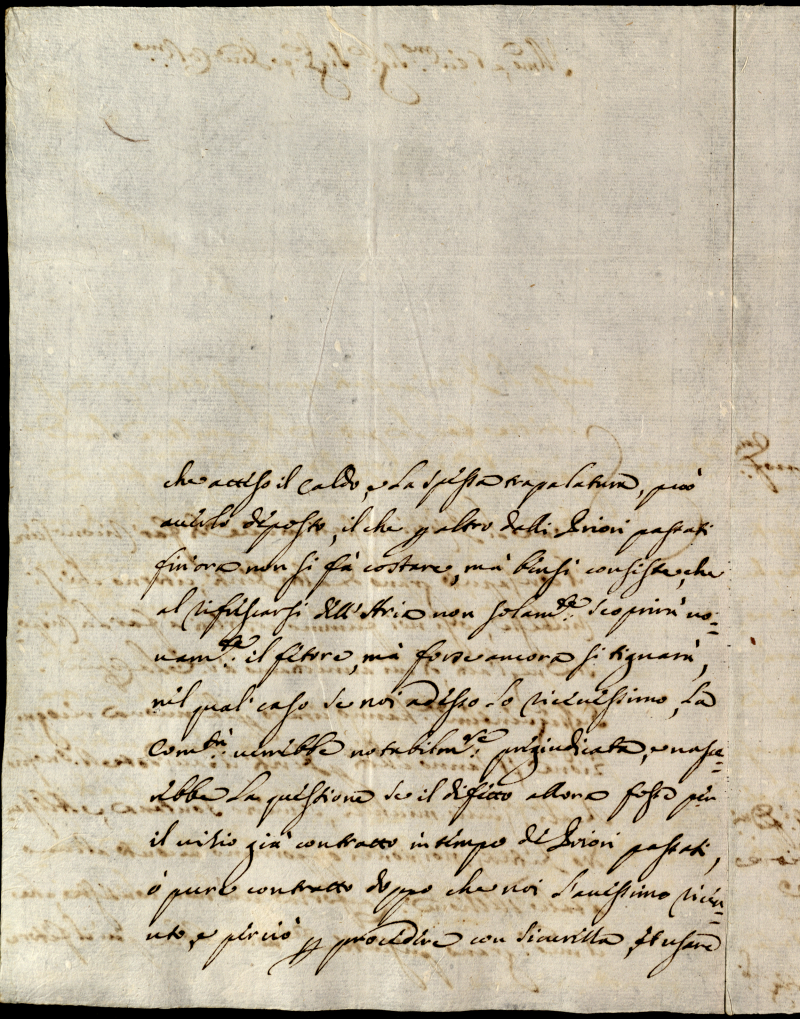 che atteso il Caldo, e la spessa trapalatura, può
averlo deposto, il che p altro dalli Priori passati
fin'ora non si fà costare, mà bensi consiste, che
al rifrescarsi dell'Aria non solam.te scoprirà no=
vam.te il fetore, mà forse ancora si tignarà,
nel qual caso se noi adesso lo ricevessimo, la
Com.tà verrebbe notabilm.te pregiudicata, e nasce=
rebbe la questione se il difetto allora fosse per
il vizio già contratto in tempo de Priori passati,
ò pure contratto doppo che noi l'avessimo ricev=
uto, e perciò p procedere con sicurezza, et usare